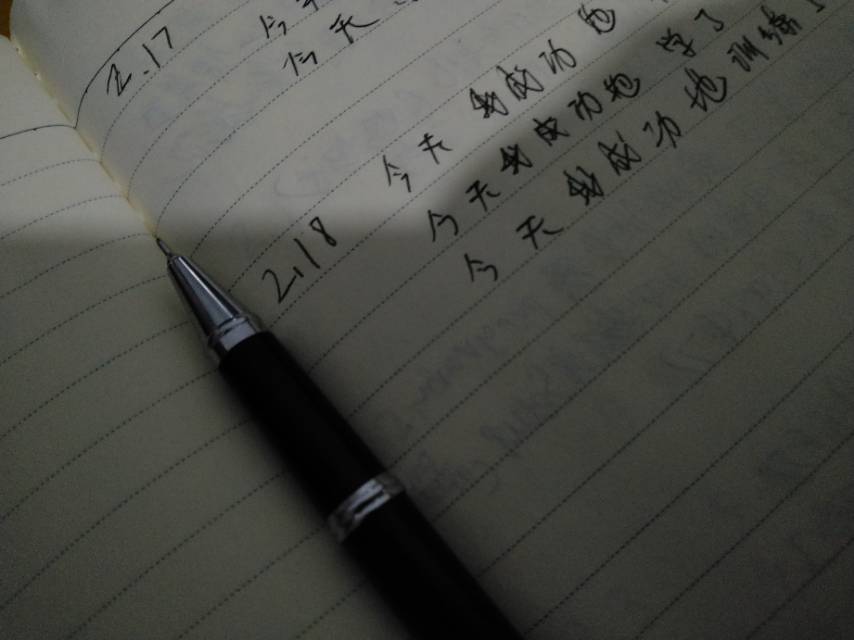 2.17
今天
今天
今天我成功地
2.18
今天我成功地学了
今天我成功地训练